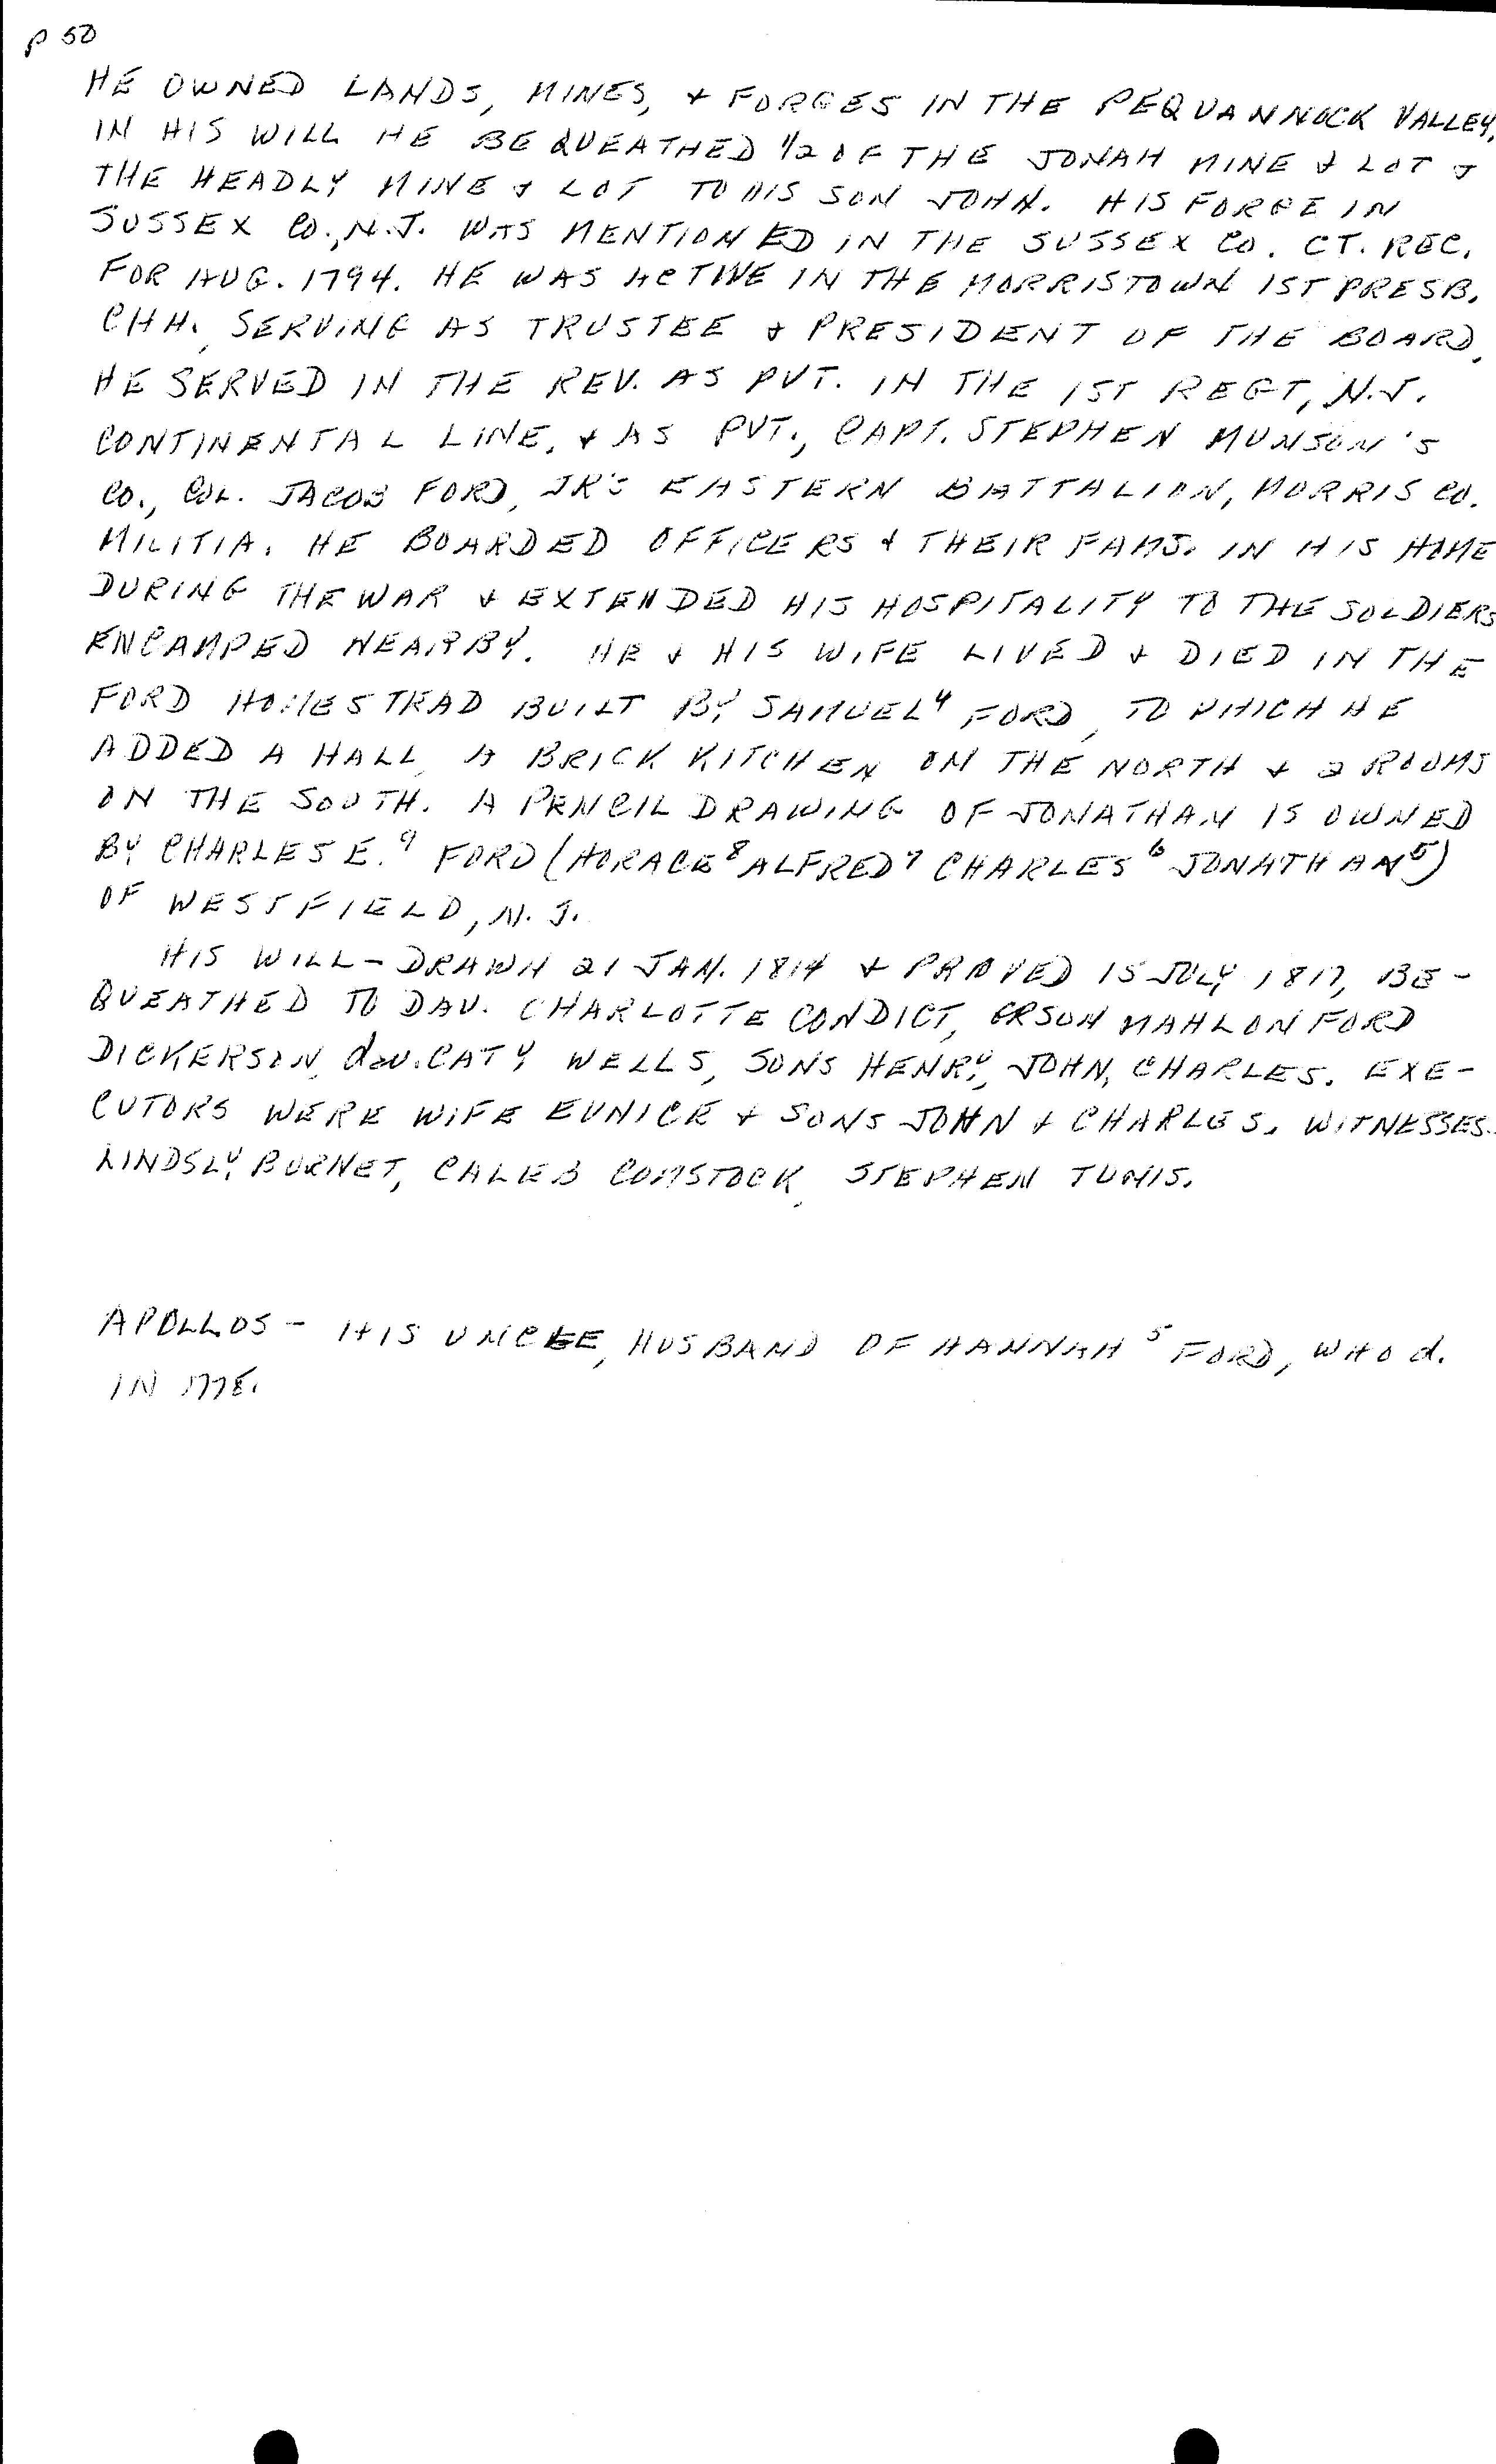 p 50
HE OWNED LANDS, MINES, & FORGES IN THE PEQUANNOCK VALLEY.
IN HIS WILL HE BEQUEATHED 1/2 OF THE JONAH MINE & LOT &
THE HEADLY MINE & LOT TO HIS SON JOHN. HIS FORGE IN
SUSSEX CO., N.J. WAS MENTIONED IN THE SUSSEX CO. CT. REC.
FOR AUG. 1794. HE WAS ACTIVE IN THE MORRISTOWN 1ST PRESB.
CHH., SERVING AS TRUSTEE & PRESIDENT OF THE BOARD.
HE SERVED IN THE REV. AS PVT. IN THE 1ST REGT, N.J.
CONTINENTAL LINE, & AS PVT., CAPT. STEPHEN MUNSON'S
CO., COL. JACOB FORD, JR'S EASTERN BATTALION, MORRIS CO.
MILITIA. HE BOARDED OFFICERS & THEIR FAMS. IN HIS HOME
DURING THE WAR & EXTENDED HIS HOSPITALITY TO THE SOLDIERS
ENCAMPED NEARBY. HE & HIS WIFE LIVED & DIED IN THE
FORD HOMESTEAD BUILT BY SAMUEL⁴ FORD, TO WHICH HE
ADDED A HALL, A BRICK KITCHEN ON THE NORTH & 2 ROOMS
ON THE SOUTH. A PENCIL DRAWING OF JONATHAN IS OWNED
BY CHARLES E.⁹ FORD (HORACE⁸ ALFRED⁷ CHARLES⁶ JONATHAN⁵)
OF WESTFIELD, N.J.
HIS WILL - DRAWN 21 JAN. 1814 & PROVED 15 JULY 1817, BE-
QUEATHED TO DAU. CHARLOTTE CONDICT, GRSON MAHLON FORD
DICKERSON, dau. CATY WELLS, SONS HENRY, JOHN, CHARLES. EXE-
CUTORS WERE WIFE EUNICE & SONS JOHN & CHARLES. WITNESSES.
LINDSLY BURNET, CALEB COMSTOCK, STEPHEN TUNIS.
APOLLOS - HIS UNCLE, HUSBAND OF HANNAH⁵ FORD, WHO d.
IN 1778.